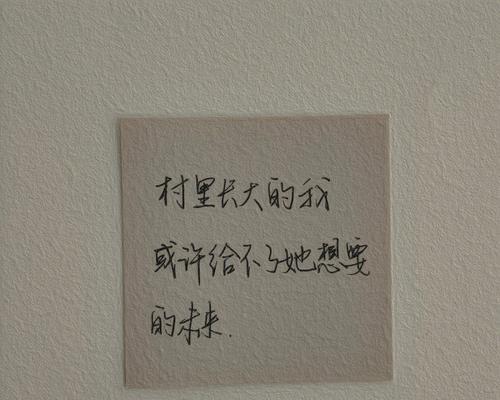 村里长大的我
或许给不了她想要
的未来.